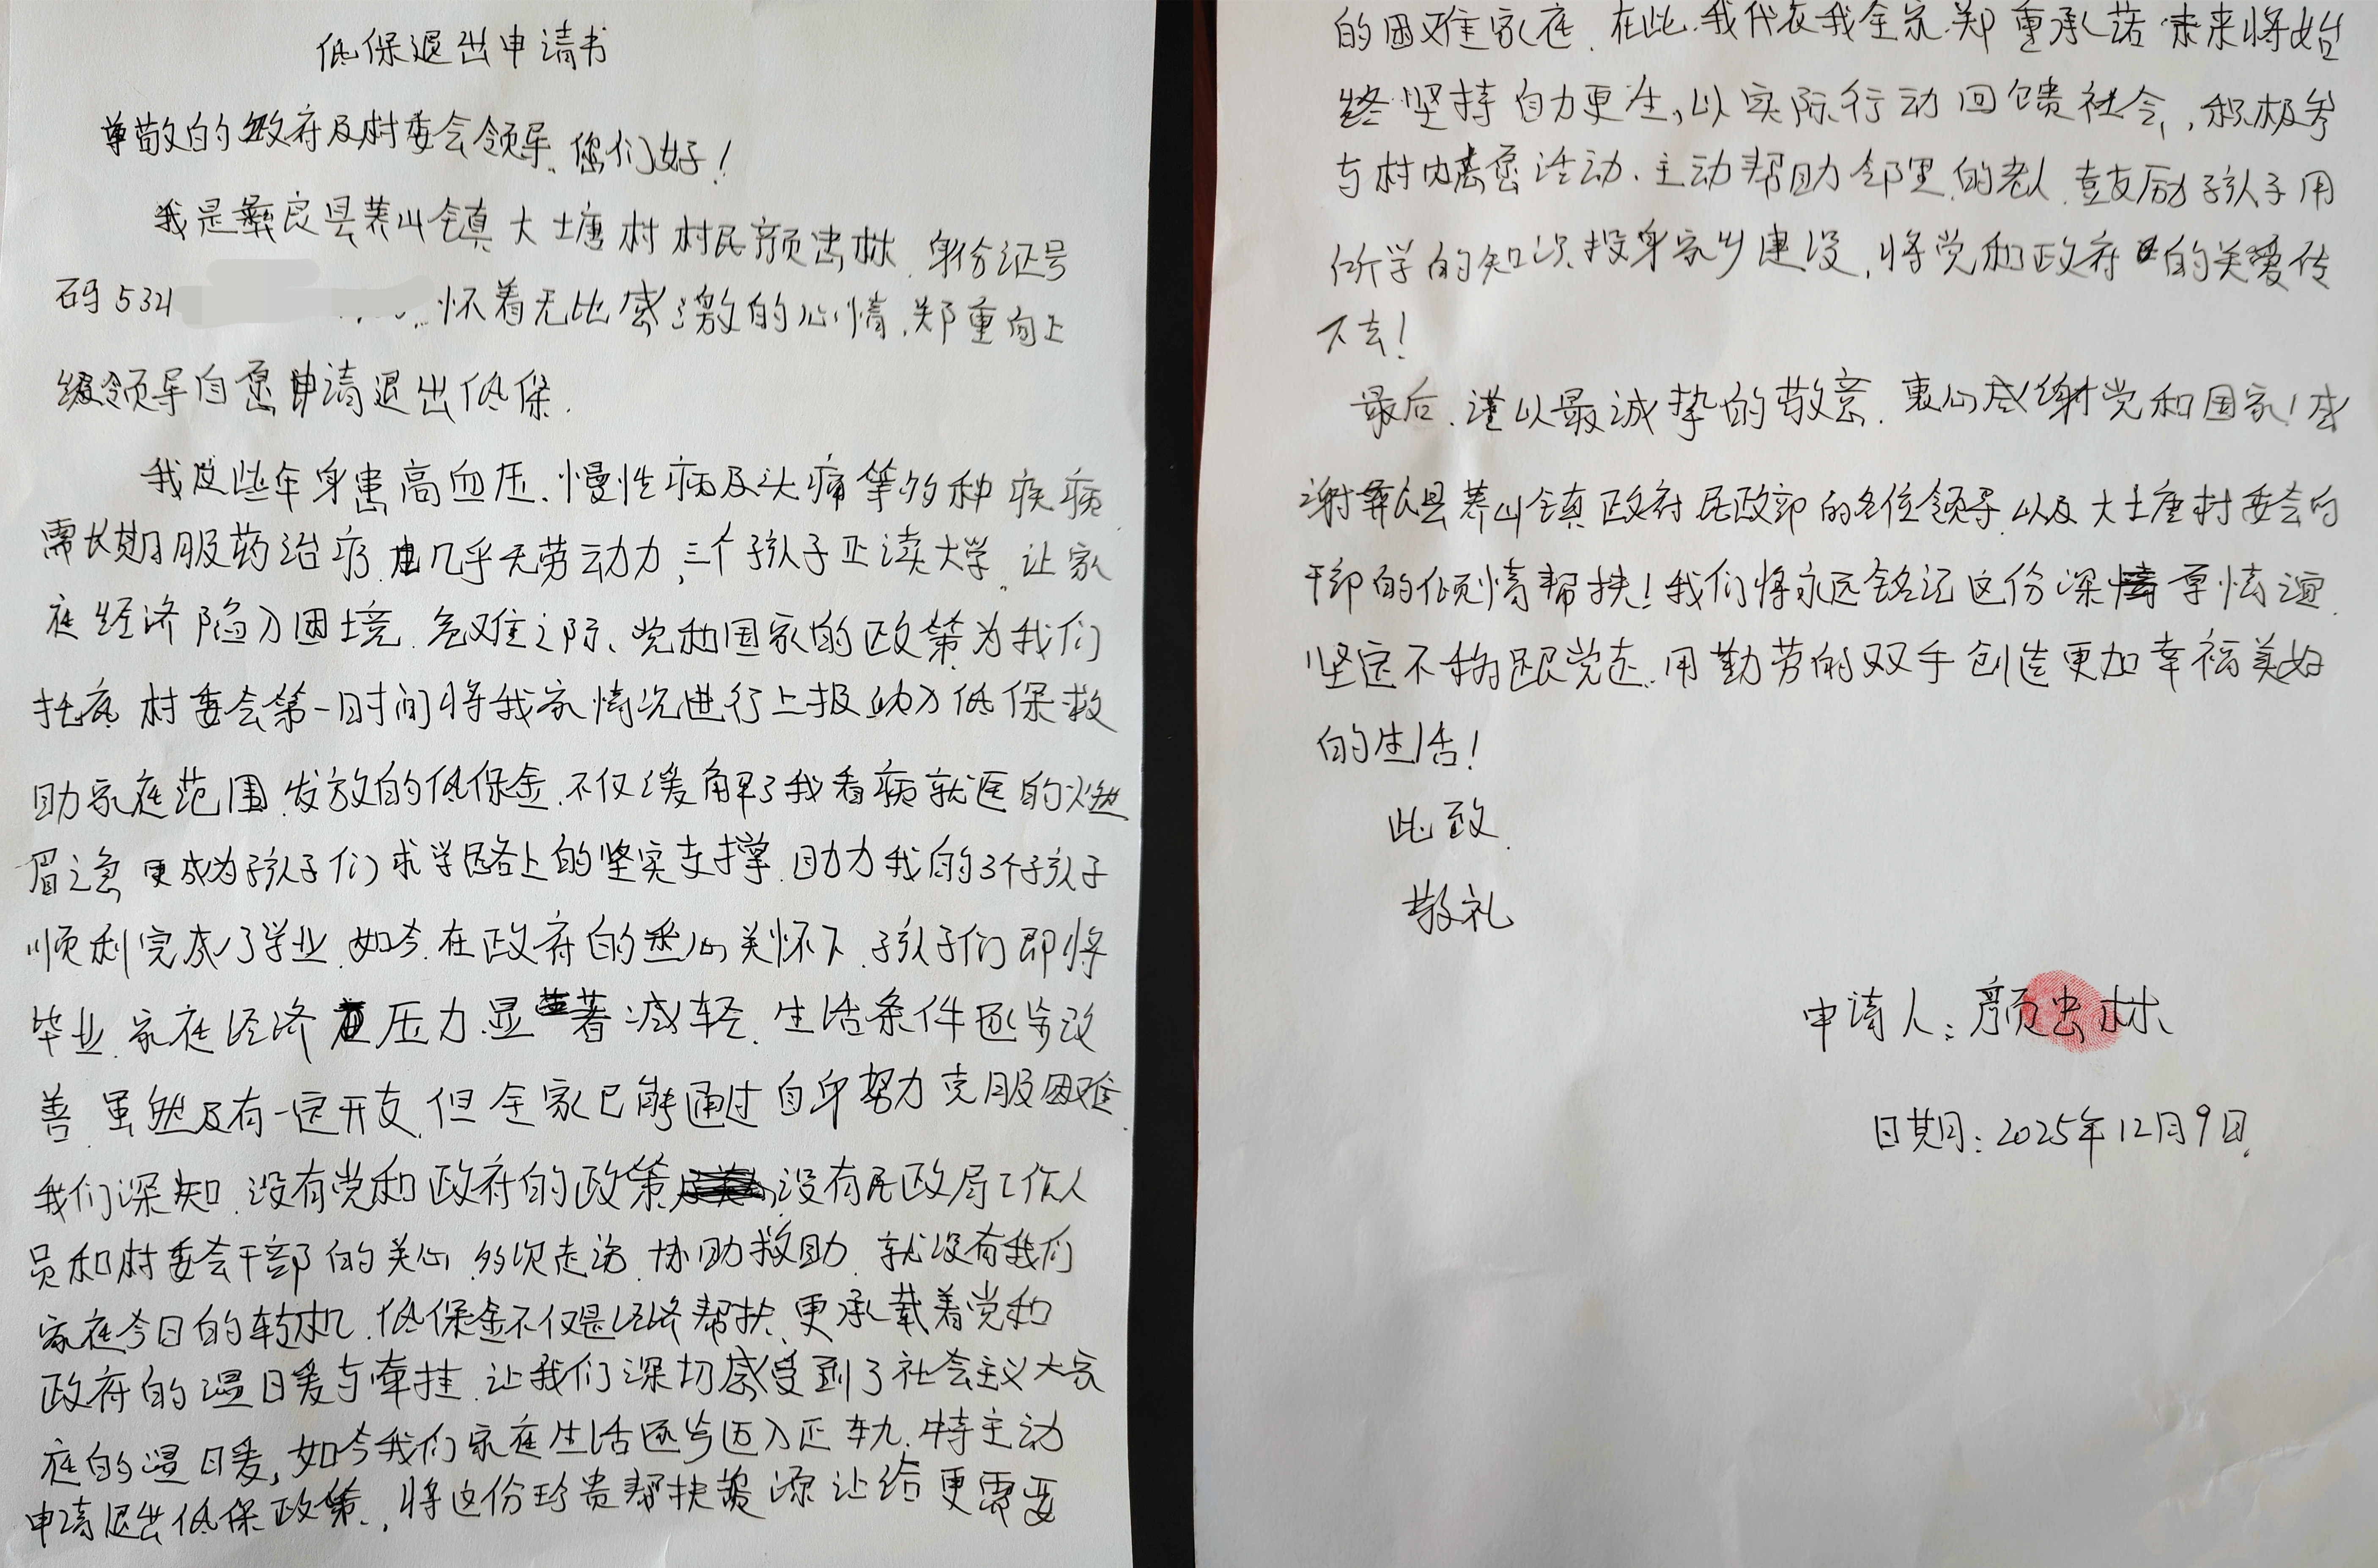 低保退出申请书
尊敬的政府及村委会领导,您们好!
我是彝良县荞山镇大土塘村村民颜虫林,身份证号
码534 怀着无比感激的心情,郑重向上
级领导自愿申请退出低保.
我这些年身患高血压、慢性病及头痛等多种疾病,
需长期服药治疗,几乎无劳动力,三个孩子正读大学,让家
庭经济陷入困境.危难之际、党和国家的政策为我们
托底,村委会第一时间将我家情况进行上报纳入低保救
助家庭范围,发放的低保金,不仅缓解了我看病就医的燃
眉之急,更成为孩子们求学路上的坚实支撑,助力我的3个孩子
顺利完成了学业,如今,在政府的悉心关怀下,孩子们即将
毕业,家庭经济压力显著减轻,生活条件逐步改
善,虽然及有一定开支,但全家已能通过自身努力克服困难.
我们深知,没有党和政府的政策,没有民政局工作人
员和村委会干部的关心,多次走访,协助救助,就没有我们
家庭今日的转机.低保金不仅是经济帮扶,更承载着党和
政府的温暖与牵挂,让我们深切感受到了社会主义大家
庭的温暖,如今我们家庭生活逐步迈入正轨,特主动
申请退出低保政策,将这份珍贵帮扶资源让给更需要
的困难家庭.在此,我代表我全家郑重承诺:未来将始
终坚持自力更生,以实际行动回馈社会,积极参
与村内志愿活动,主动帮助邻里的老人,鼓励孩子用
所学的知识投身家乡建设,将党和政府的关爱传
下去!
最后,谨以最诚挚的敬意,衷心感谢党和国家!感
谢彝良县荞山镇政府民政部的各位领导,以及大土塘村委会的
干部的倾情帮扶!我们将永远铭记这份深情厚谊,
坚定不移跟党走,用勤劳的双手创造更加幸福美好
的生活!
此致
敬礼
申请人:颜虫林
日期:2025年12月9日